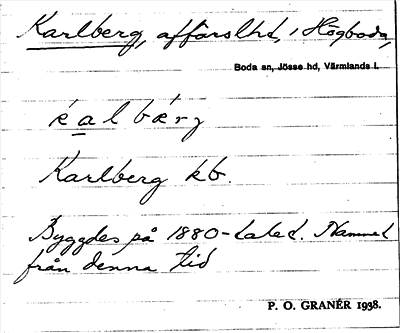 Karlberg, affärslht, i Högboda,
Boda sn, Jösse hd, Värmlands l.
Karlberg kb.
Byggdes på 1880-talet. Namnet
från denna tid
P. O. GRANÉR 1938.